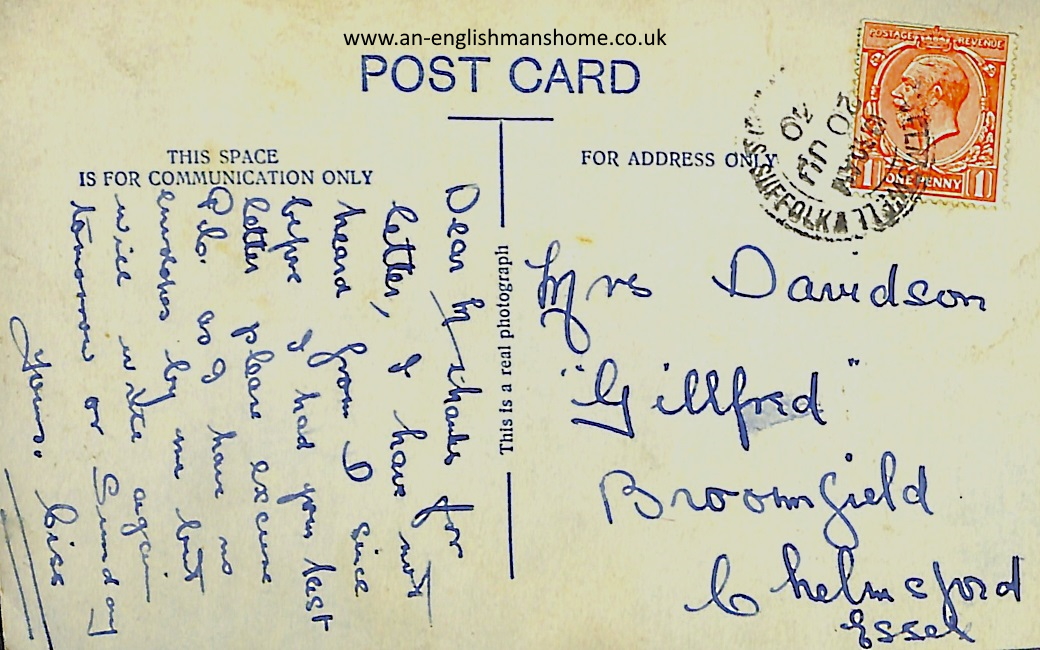 www.an-englishmanshome.co.uk
POST CARD
THIS SPACE
IS FOR COMMUNICATION ONLY
FOR ADDRESS ONLY
POSTAGE REVENUE
1 ONE PENNY 1
20 JU
SUFFOLK
This is a real photograph
Dear M thanks for
letter, I have not
heard from D since
before I had your last
letter please excuse
P.C. as I have no
envelopes by me but
will write again
tomorrow or Sunday
Yours. Ciss
Mrs Davidson
"Gillfred"
Broomfield
Chelmsford
Essex